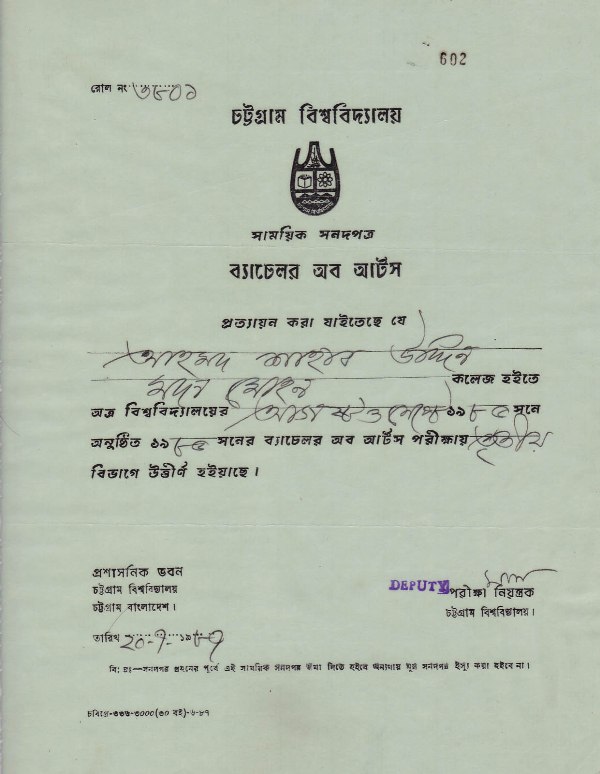 602
রোল নং ৩৮০১
চট্টগ্রাম বিশ্ববিদ্যালয়
সাময়িক সনদপত্র
ব্যাচেলর অব আর্টস
প্রত্যায়ন করা যাইতেছে যে
আহমদ উদ্দিন
মদন মোহন কলেজ হইতে
অত্র বিশ্ববিদ্যালয়ের ১৯৮৫ সনে
অনুষ্ঠিত ১৯৮৫ সনের ব্যাচেলর অব আর্টস পরীক্ষায় তৃতীয়
বিভাগে উত্তীর্ণ হইয়াছে।
প্রশাসনিক ভবন
চট্টগ্রাম বিশ্ববিদ্যালয়
চট্টগ্রাম বাংলাদেশ।
DEPUTY পরীক্ষা নিয়ন্ত্রক
চট্টগ্রাম বিশ্ববিদ্যালয়।
তারিখ ২০-৭-১৯৮৭
বি: দ্র:—সনদপত্র গ্রহনের পূর্বে এই সাময়িক সনদপত্র জমা দিতে হইবে অন্যথায় মূল সনদপত্র ইস্যু করা হইবে না।
চবিপ্রে-৩৩৬-৩০০০(৩০ বই)-৬-৮৭